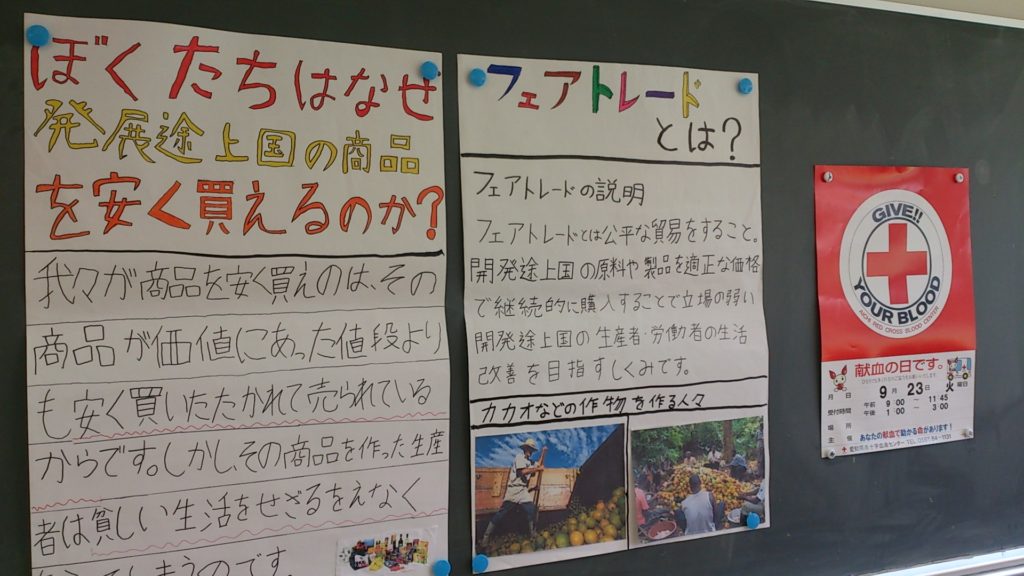 ぼくたちはなぜ
発展途上国の商品
を安く買えるのか?
我々が商品を安く買えのは、その
商品が価値にあった値段より
も安く買いたたかれて売られている
からです。しかし、その商品を作った生産
者は貧しい生活をせざるをえなく
てしまうのです。
フェアトレード
とは?
フェアトレードの説明
フェアトレードとは公平な貿易をすること。
開発途上国の原料や製品を適正な価格
で継続的に購入することで立場の弱い
開発途上国の生産者・労働者の生活
改善を目指すしくみです。
カカオなどの作物を作る人々
GIVE!!
YOUR BLOOD
RED CROSS BLOOD CENTER
献血の日です。
月日 9月23日 火曜日
受付時間 午前 9:00 〜 11:45
午後 1:00 〜 3:00
場所
主催 あなたの献血で助かる命があります!
愛知県赤十字血液センター TEL